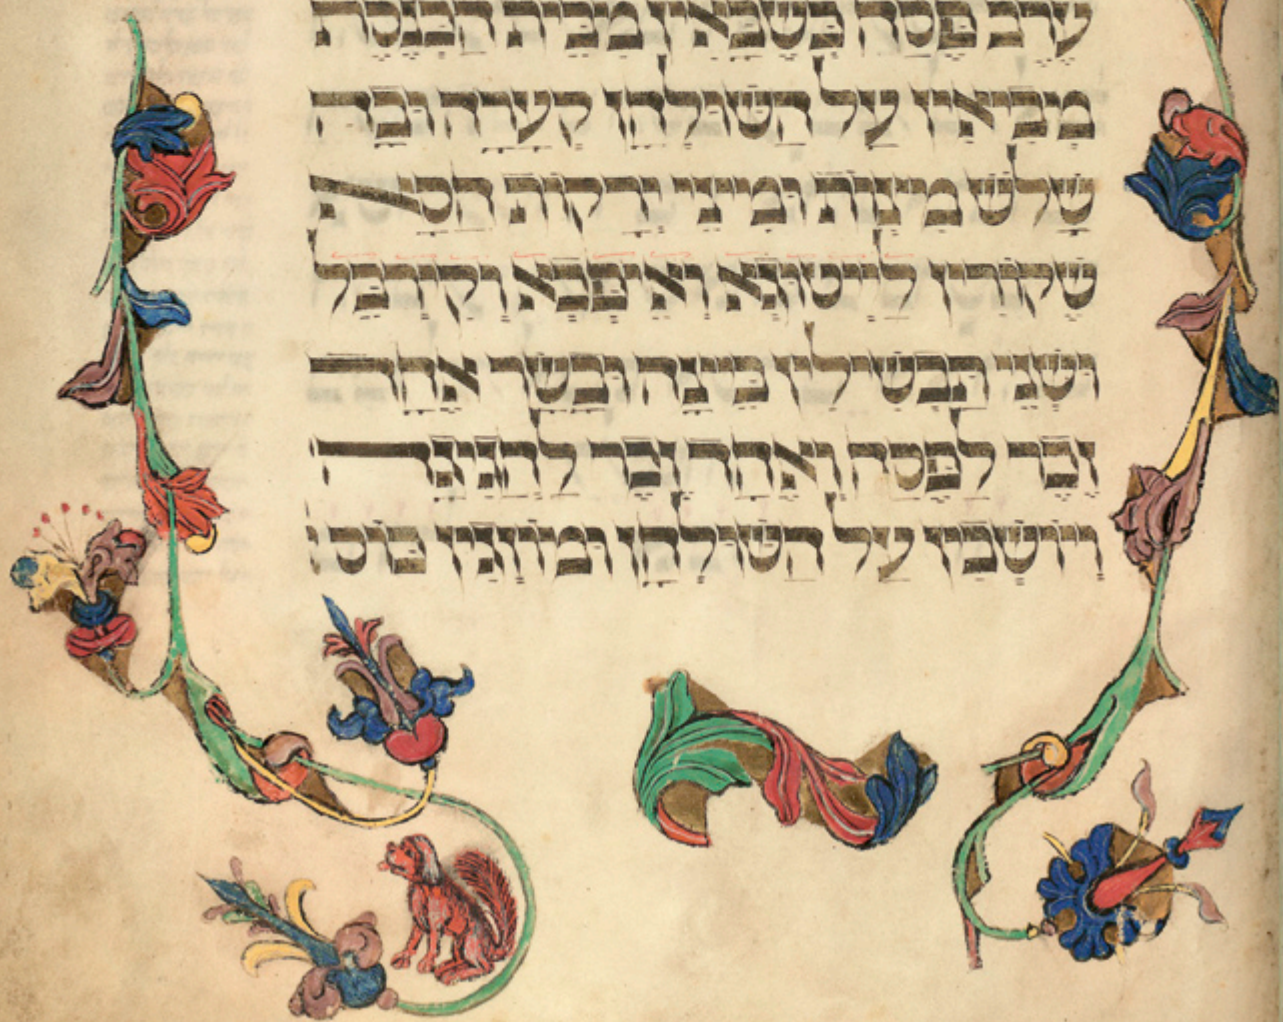 ערב פסח כשבאין מבית הכנסת
מביאין על השולחן קערה ובה
שלש מצות ומיני ירקות חסא
שקורין לייטוגא ואיפפא וקירבל
ושני תבשילין ביצה ובשר אחד
זכר לפסח ואחד זכר לחגיגה
ויושבין על השולחן ומוזגין כוס: